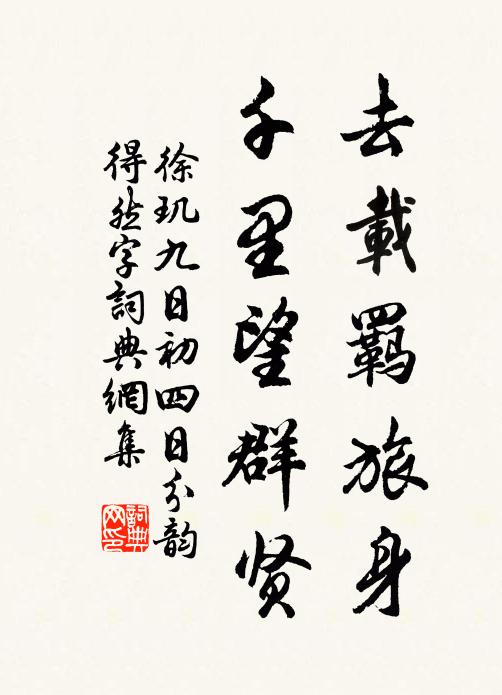 去載羈旅身
千里望群贤
徐玑九日初四日分韵
得然字詞典網集
詞典网印